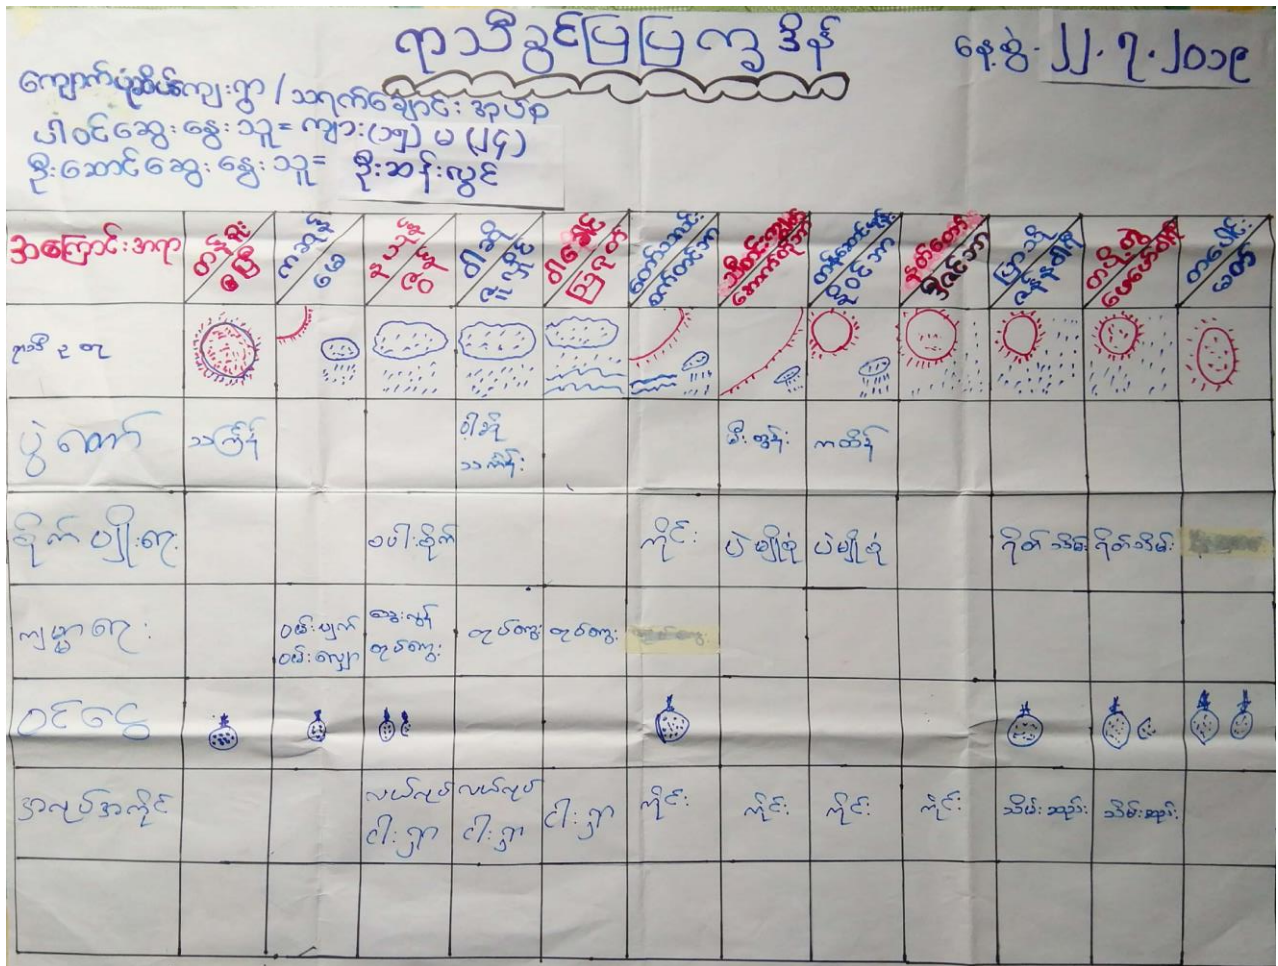 ရာသီခွင်ပြပြက္ခဒိန်
နေ့စွဲ- ၂၂.၇.၂၀၁၉
ကျေးရွာ / သရက်ချောင်း အုပ်စု
ပါဝင်ဆွေးနွေးသူ= ကျား(၁၅) မ (၂၄)
ဦးဆောင်ဆွေးနွေးသူ= ဦးဆန်းလွင်
အကြောင်းအရာ တန်ခူး ဧပြီ ကဆုန် မေ နယုန် ဇွန် ဝါဆို ဇူလိုင် ဝါခေါင် ဩဂုတ် တော်သလင်း စက်တင်ဘာ သီတင်းကျွတ် အောက်တိုဘာ တန်ဆောင်မုန်း နိုဝင်ဘာ နတ်တော် ဒီဇင်ဘာ ပြာသို ဇန်နဝါရီ တပို့တွဲ ဖေဖော်ဝါရီ တပေါင်း မတ်
ရာသီဥတု
ပွဲတော် သင်္ကြန် ဝါဆို သင်္ကန်း မီးထွန်း ကထိန်
စိုက်ပျိုးရေး စပါးစိုက် ကိုင်း ပဲမျိုးစုံ ပဲမျိုးစုံ ရိတ်သိမ်း ရိတ်သိမ်း
ကျန်းမာရေး ဝမ်းပျက် ဝမ်းလျှော သွေးလွန် တုပ်ကွေး တုပ်ကွေး တုပ်ကွေး
ဝင်ငွေ
အလုပ်အကိုင် လယ်လုပ် ငါးရှာ လယ်လုပ် ငါးရှာ ငါးရှာ ကိုင်း ကိုင်း ကိုင်း ကိုင်း သိမ်းဆည်း သိမ်းဆည်း